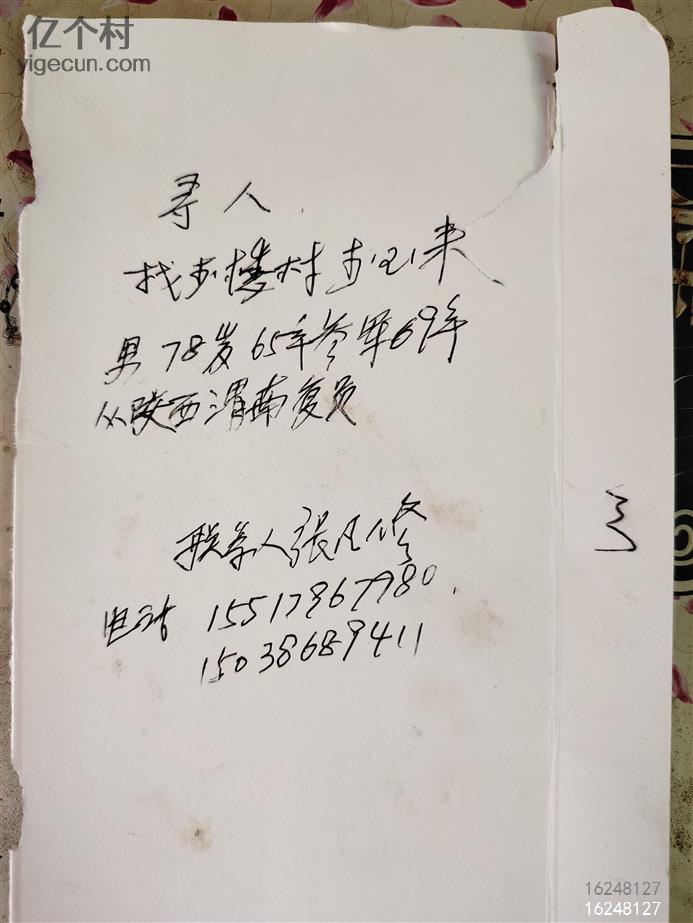 亿个村
yigecun.com
寻人
找步楼村步心来
男78岁65年参军69年
从陕西渭南复员
联系人张凡修
电话 15517967980.
15038689411
16248127
16248127